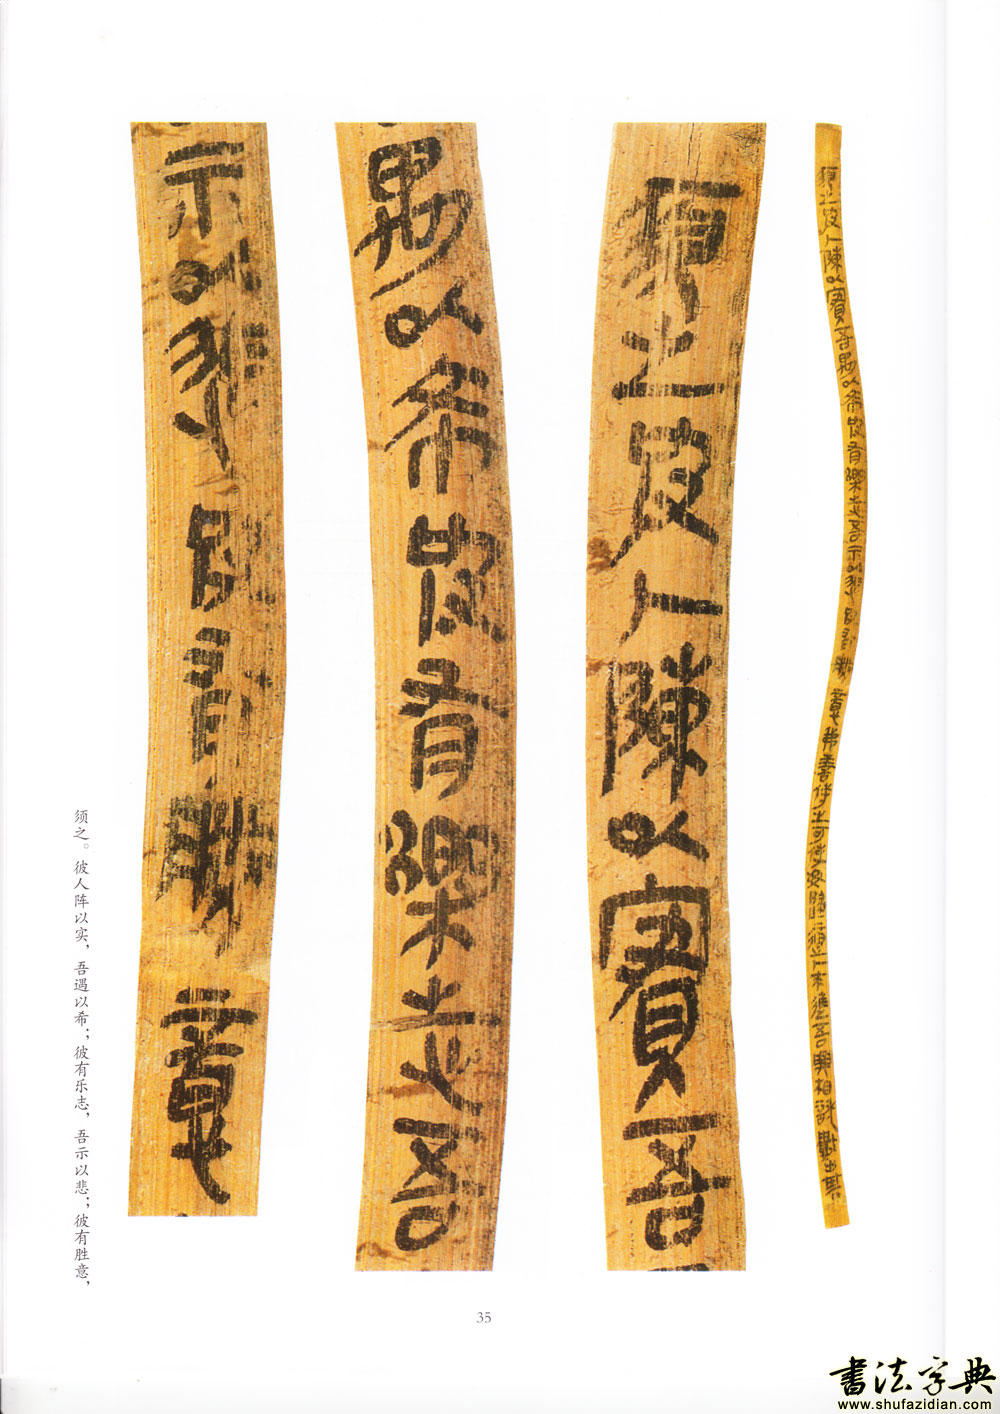 之皮人陳以實吾禺以希皮有樂志吾示以悲皮有勝意
須之皮人陳以實吾
禺以希皮有樂志吾
示以悲皮有勝意
须之。彼人阵以实，吾遇以希；彼有乐志，吾示以悲；彼有胜意，
35
書法字典
www.shufazidian.com